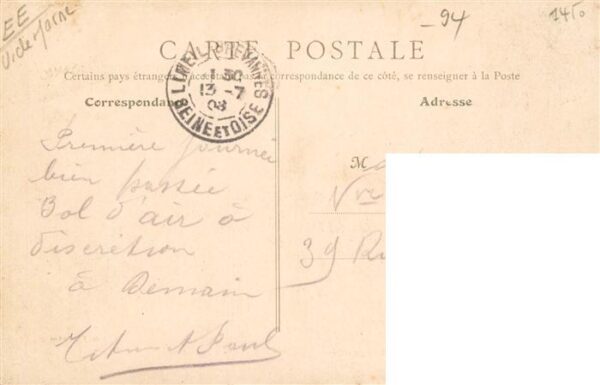 EE
-94
1450
CARTE POSTALE
Certains pays étrangers acceptant pas correspondance de ce côté, se renseigner à la Poste
Correspondance
Adresse
LIMEIL-BREVANNES
1 30
13 -7
08
SEINE ET OISE
Première journée
bien passée
Bol d'air à
discrétion
à Demain
M
Vve
39 Ru